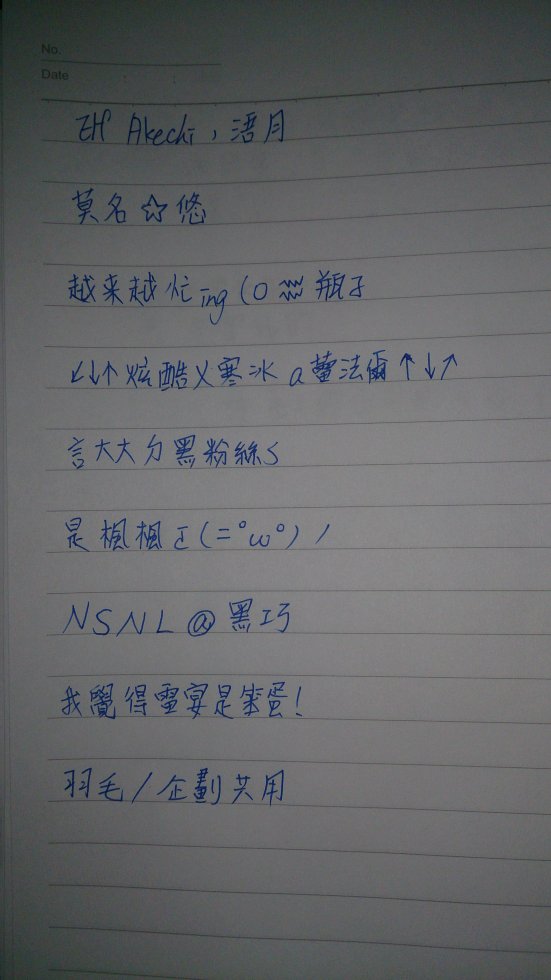 No.
Date
Akechi, 浯月
莫名☆悠
越来越忙ing (o ♒ 瓶子
↙↓↑炫酷乂寒冰 a 蕾法爾↑↓↗
言大大ㄉ黑粉絲S
是楓楓Σ(=°ω°)ノ
NSNL@黑巧
我覺得雪宴是笨蛋!
羽毛/企劃共用